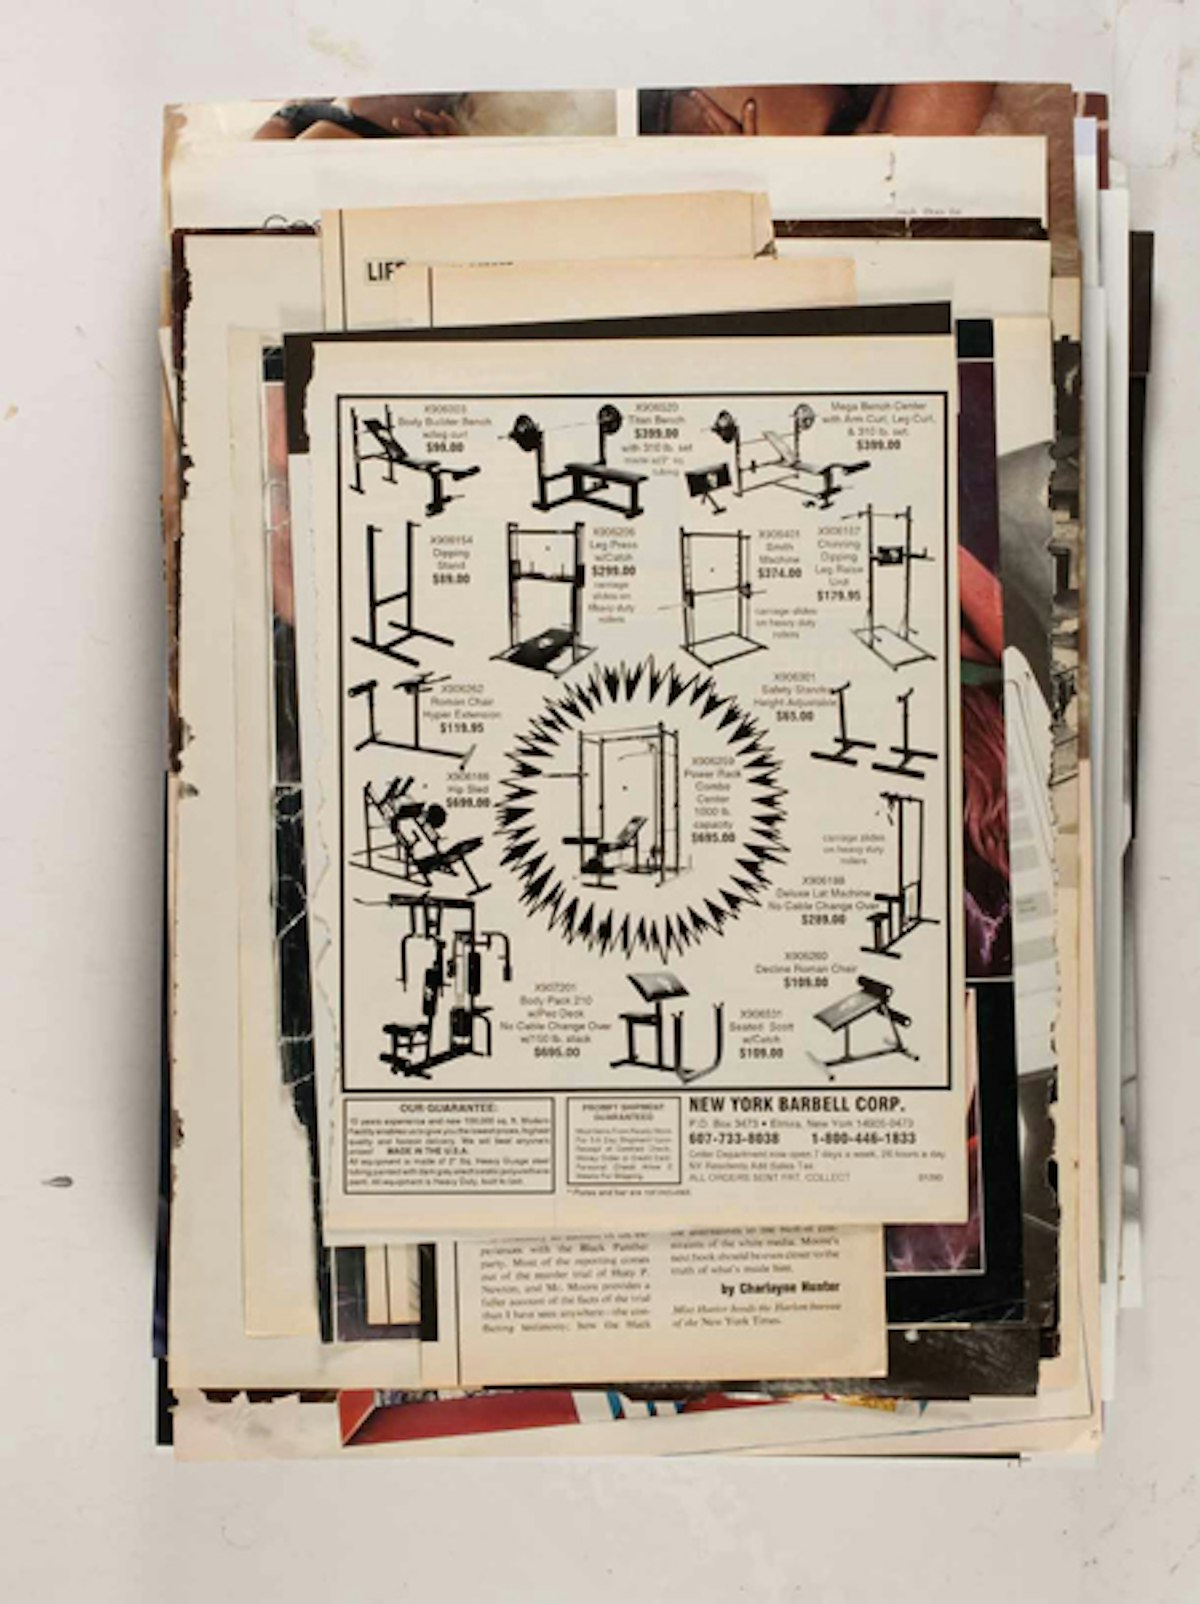 LIFE
Body Builder Bench
w/leg curl
$99.00
Titan Bench
$399.00
with 310 lb. set
Mega Bench Center
with Arm Curl, Leg Curl,
& 310 lb. set.
$399.00
Dipping
Stand
$89.00
X906206
Leg Press
w/Catch
$299.00
carriage
slides on
heavy duty
rollers
X906401
Smith
Machine
$374.00
carriage slides
on heavy duty
rollers
Chinning
Dipping
Leg Raise
Unit
$179.95
X906262
Roman Chair
Hyper Extension
$119.95
X906301
Safety Stands
Height Adjustable
$65.00
X906166
Hip Sled
$699.00
X906259
Power Rack
Combo
Center
1000 lb.
capacity
$695.00
carriage slides
on heavy duty
rollers
X906188
Deluxe Lat Machine
No Cable Change Over
$289.00
X907201
Body Pack 210
w/Pec Deck
No Cable Change Over
w/150 lb. stack
$695.00
X906260
Decline Roman Chair
$109.00
X906531
Seated Scott
w/Catch
$109.00
OUR GUARANTEE:
MADE IN THE U.S.A.
PROMPT SHIPMENT
GUARANTEED
NEW YORK BARBELL CORP.
P.O. Box 3473 • Elmira, New York 14905-0473
607-733-8038 1-800-446-1833
Order Department now open 7 days a week, 24 hours a day.
NY Residents Add Sales Tax
ALL ORDERS SENT FRT. COLLECT
* Plates and bar are not included.
periences with the Black Panther
party. Most of the reporting comes
out of the murder trial of Huey P.
Newton, and Mr. Moore provides a
fuller account of the facts of the trial
than I have seen anywhere—the con-
flicting testimony; how the black
straints of the white media. Moore's
next book should be even closer to the
truth of what's inside him.
by Charlayne Hunter
Miss Hunter heads the Harlem bureau
of the New York Times.